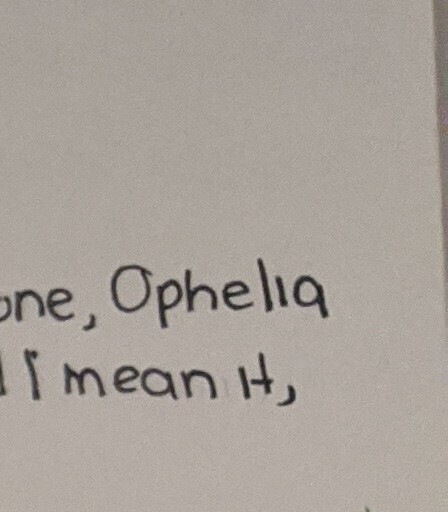 one, Ophelia
I mean it,